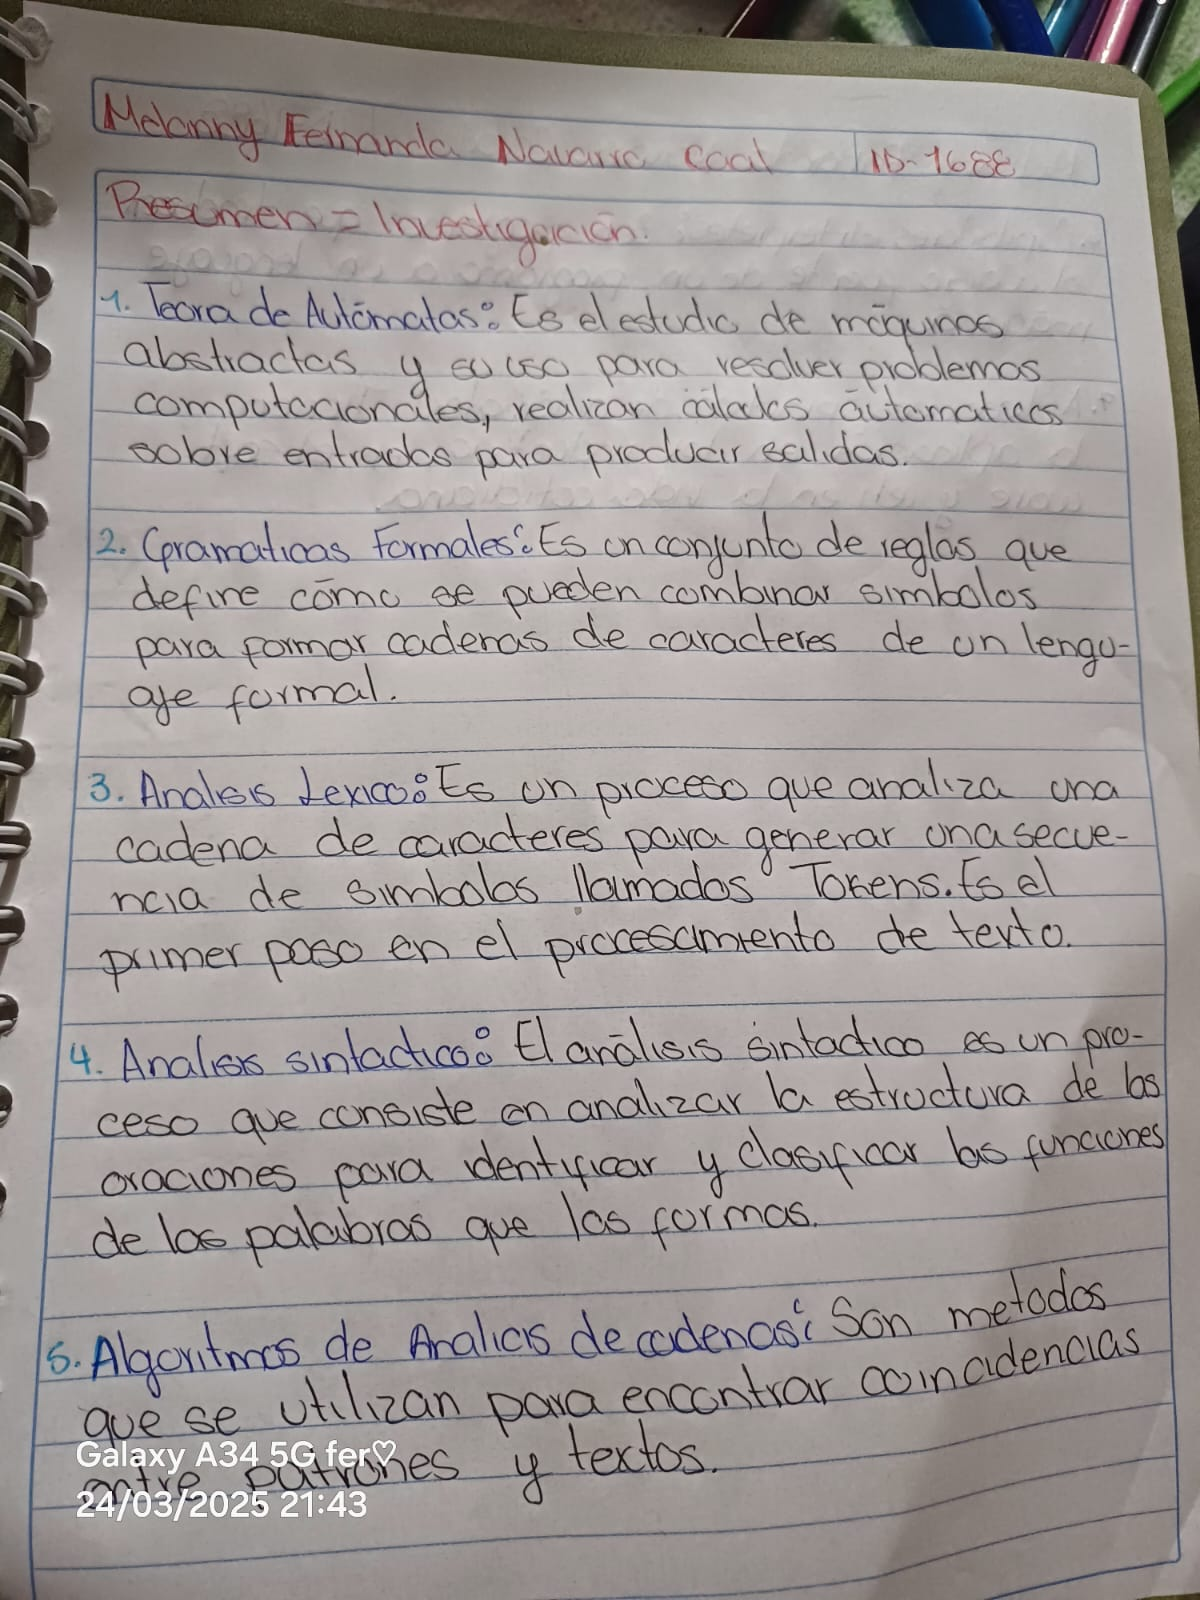 Melanny Fernanda Navarro Caal ID-1688
Resumen = Investigación.
1. Teoria de Autómatas: Es el estudio de máquinas
abstractas y su uso para resolver problemas
computacionales, realizan cálculos áutomaticos
sobre entradas para producir salidas.
2. Gramaticas Formales: Es un conjunto de reglas que
define cómo se pueden combinar simbolos
para formar cadenas de caracteres de un lengu-
aje formal.
3. Analisis Lexico: Es un proceso que analiza una
cadena de caracteres para generar una secue-
ncia de simbolos llamados Tokens. Es el
primer paso en el procesamiento de texto.
4. Analisis sintactico: El análisis sintactico es un pro-
ceso que consiste en analizar la estructura de las
oraciones para identificar y clasificar las funciones
de las palabras que las formas.
5. Algoritmos de Analicis de cadenas: Son metodos
que se utilizan para encontrar coincidencias
entre patrones y textos.
Galaxy A34 5G fer♡
24/03/2025 21:43